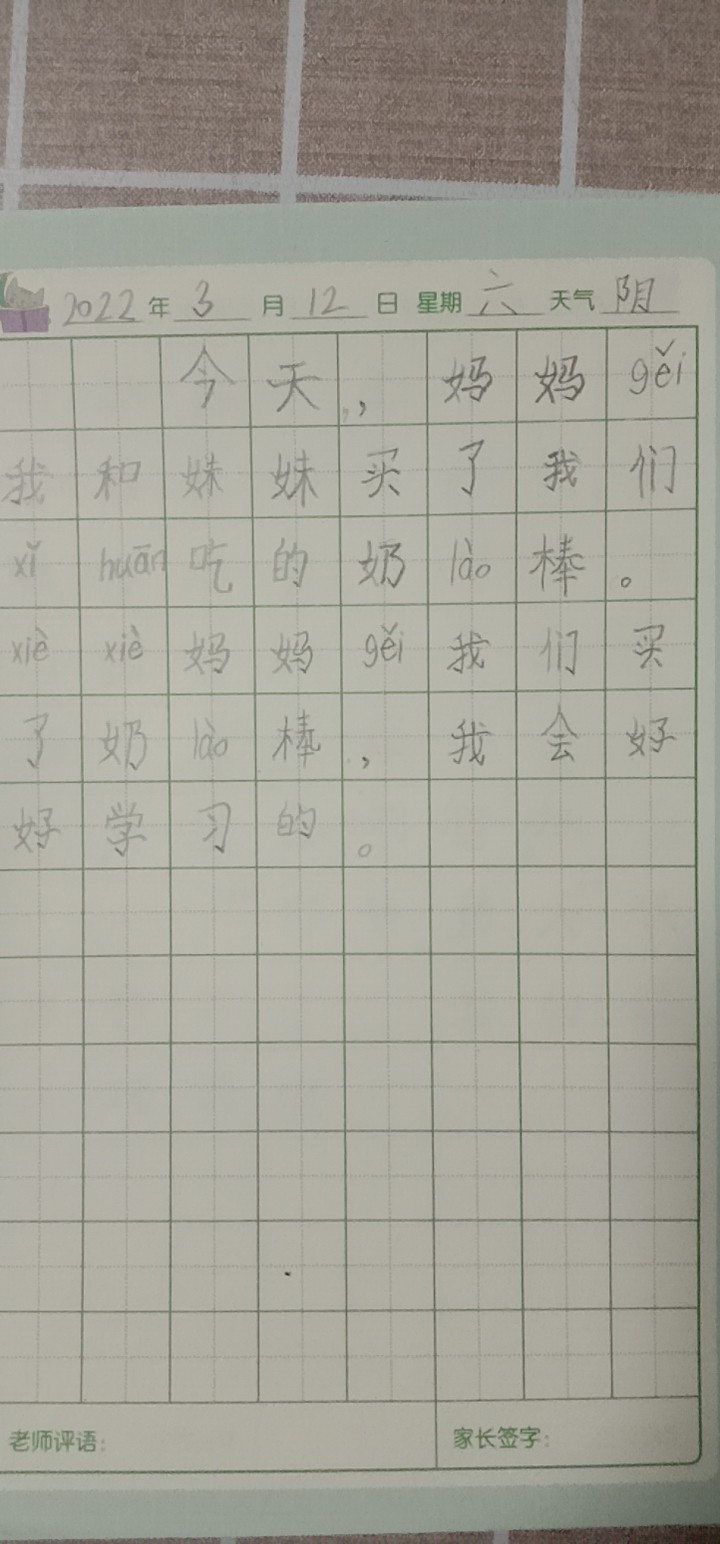 2022年3月12日 星期六 天气阴
今天，妈妈gěi
我和妹妹买了我们
xǐ huān吃的奶lào棒。
xiè xiè妈妈gěi我们买
了奶lào棒，我会好
好学习的。
老师评语： 家长签字：